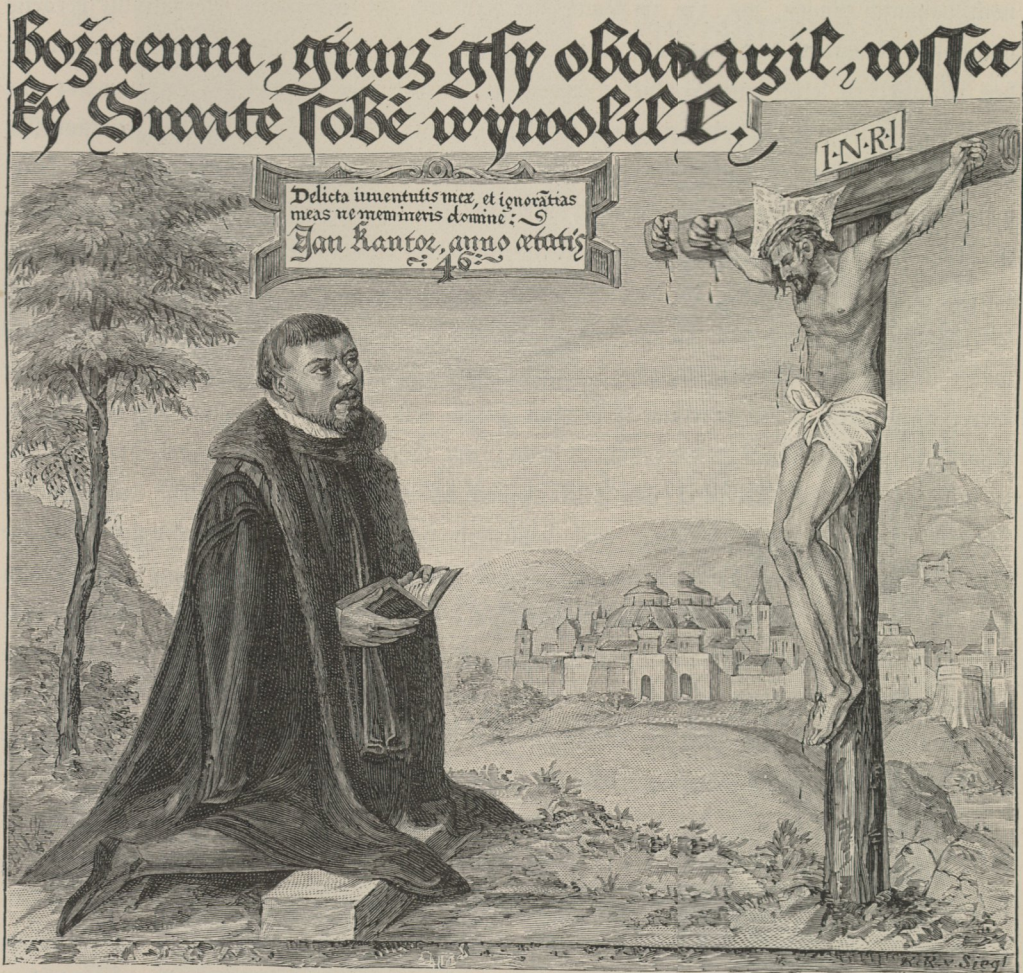 božnemu, gimž gsy obdaarzil, wssec
ky Swate sobě wywolil.
I·N·R·I
Delicta iuuentutis meæ, et ignorãtias
meas ne memineris domine:
Jan Kantor, anno ætatis
46
K.R.v. Siegl